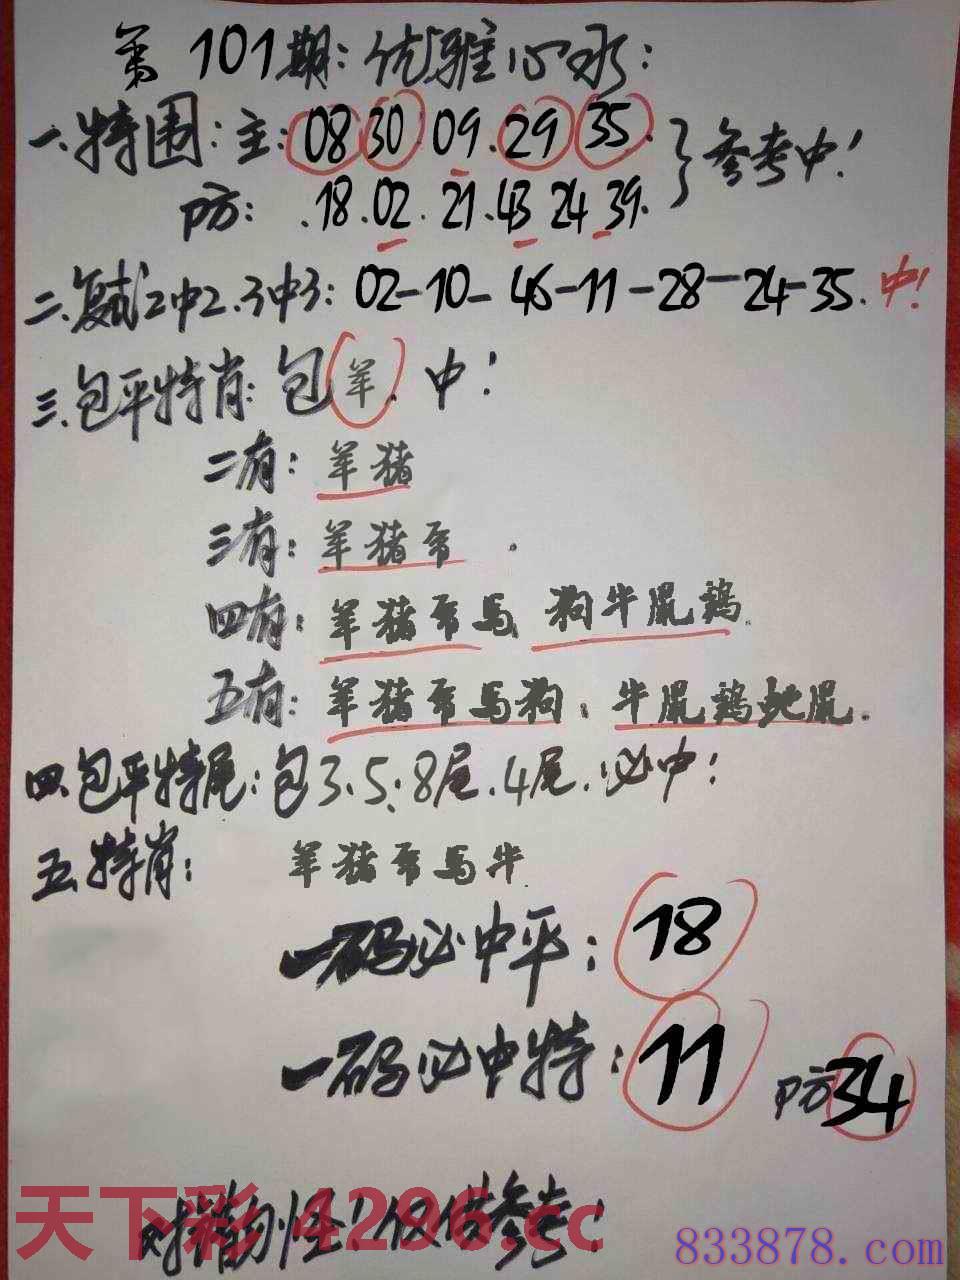 第101期：优雅心水：
一、特围：主：08 30 09. 29 35. 参考中！
防：.18.02.21.43 24 39.
二、复试2中2.3中3：02-10-46-11-28-24-35. 中！
三、包平特肖：包羊. 中！
二有：羊猪
三有：羊猪虎.
四有：羊猪虎马 狗牛鼠鸡.
五有：羊猪虎马狗. 牛鼠鸡蛇鼠.
四、包平特尾：包3.5.8尾.4尾.必中！
五、特肖： 羊猪虎马牛
一码必中平：18
一码必中特：11 防34
天下彩 4296.cc
仅供参考！
833878.com